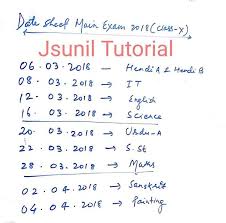 Date Sheet Main Exam 2018 (class-X)
Jsunil Tutorial
06.03.2018 - Hendi A & Hendi B
08.03.2018 - IT
12.03.2018 - English
16.03.2018 - Science
20.03.2018 - Urdu-A
22.03.2018 - S.St
28.03.2018 - Maths
02.04.2018 - Sanskrit
04.04.2018 - Painting